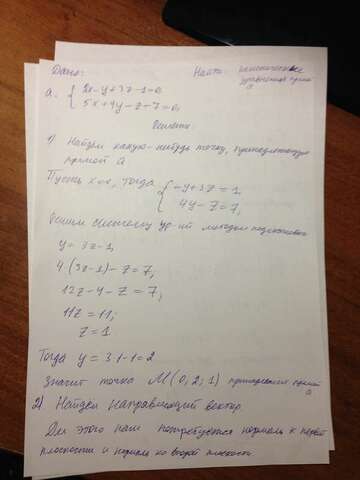 Дано: Найти: канонические
уравнения прямой
a: { 2x-y+3z-1=0,
5x+4y-z-7=0.
Решение.
1) Найдём какую-нибудь точку, принадлежащую
прямой a
Пусть x=0, тогда { -y+3z=1,
4y-z=7,
Решим систему ур-ий методом подстановки
y=3z-1,
4(3z-1)-z=7,
12z-4-z=7,
11z=11,
z=1
Тогда y=3·1-1=2
Значит точка M(0;2;1) принадлежит прямой
a
2) Найдём направляющий вектор.
Для этого нам потребуются нормаль к первой
плоскости и нормаль ко второй плоскости.